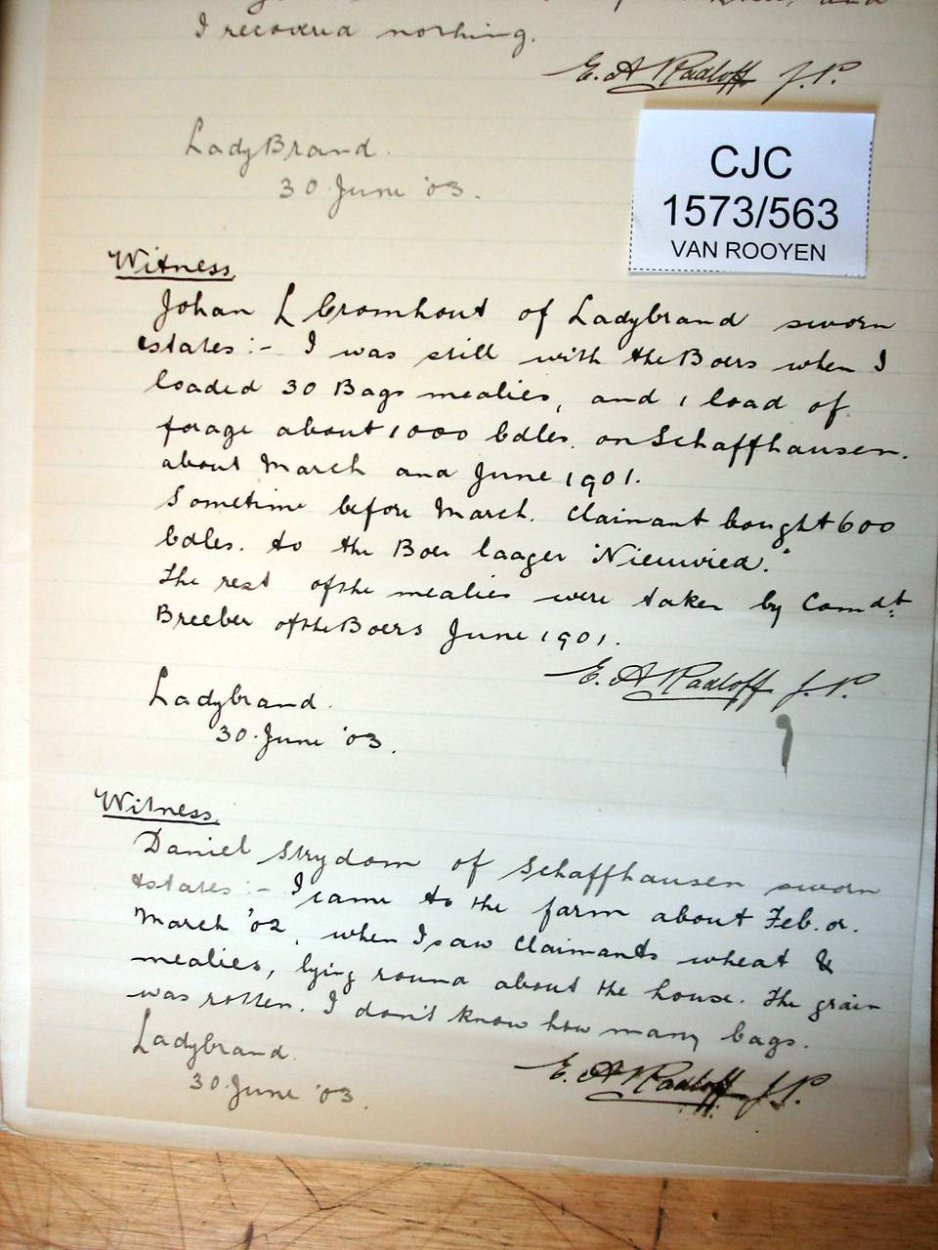 and
I recovered nothing.
E. A Radloff J.P.
LadyBrand.
30 June '03.
CJC
1573/563
VAN ROOYEN
Witness.
Johan L Cromhout of Ladybrand sworn
states:- I was still with the Boers when I
loaded 30 Bags mealies, and 1 load of
forage about 1000 bdles. on Schaffhausen.
about March and June 1901.
Sometime before March. Claimant bought 600
bdles. to the Boer laager "Nieuwied."
The rest of the mealies were taken by Comdt.
Breeber of the Boers June 1901.
E. A Radloff J.P.
Ladybrand.
30 June '03.
Witness.
Daniel Strydom of Schaffhausen sworn
states:- I came to the farm about Feb. or.
March '02, when I saw Claimants wheat &
mealies, lying round about the house. The grain
was rotten. I don't know how many bags.
Ladybrand.
E. A Radloff J.P.
30 June '03.